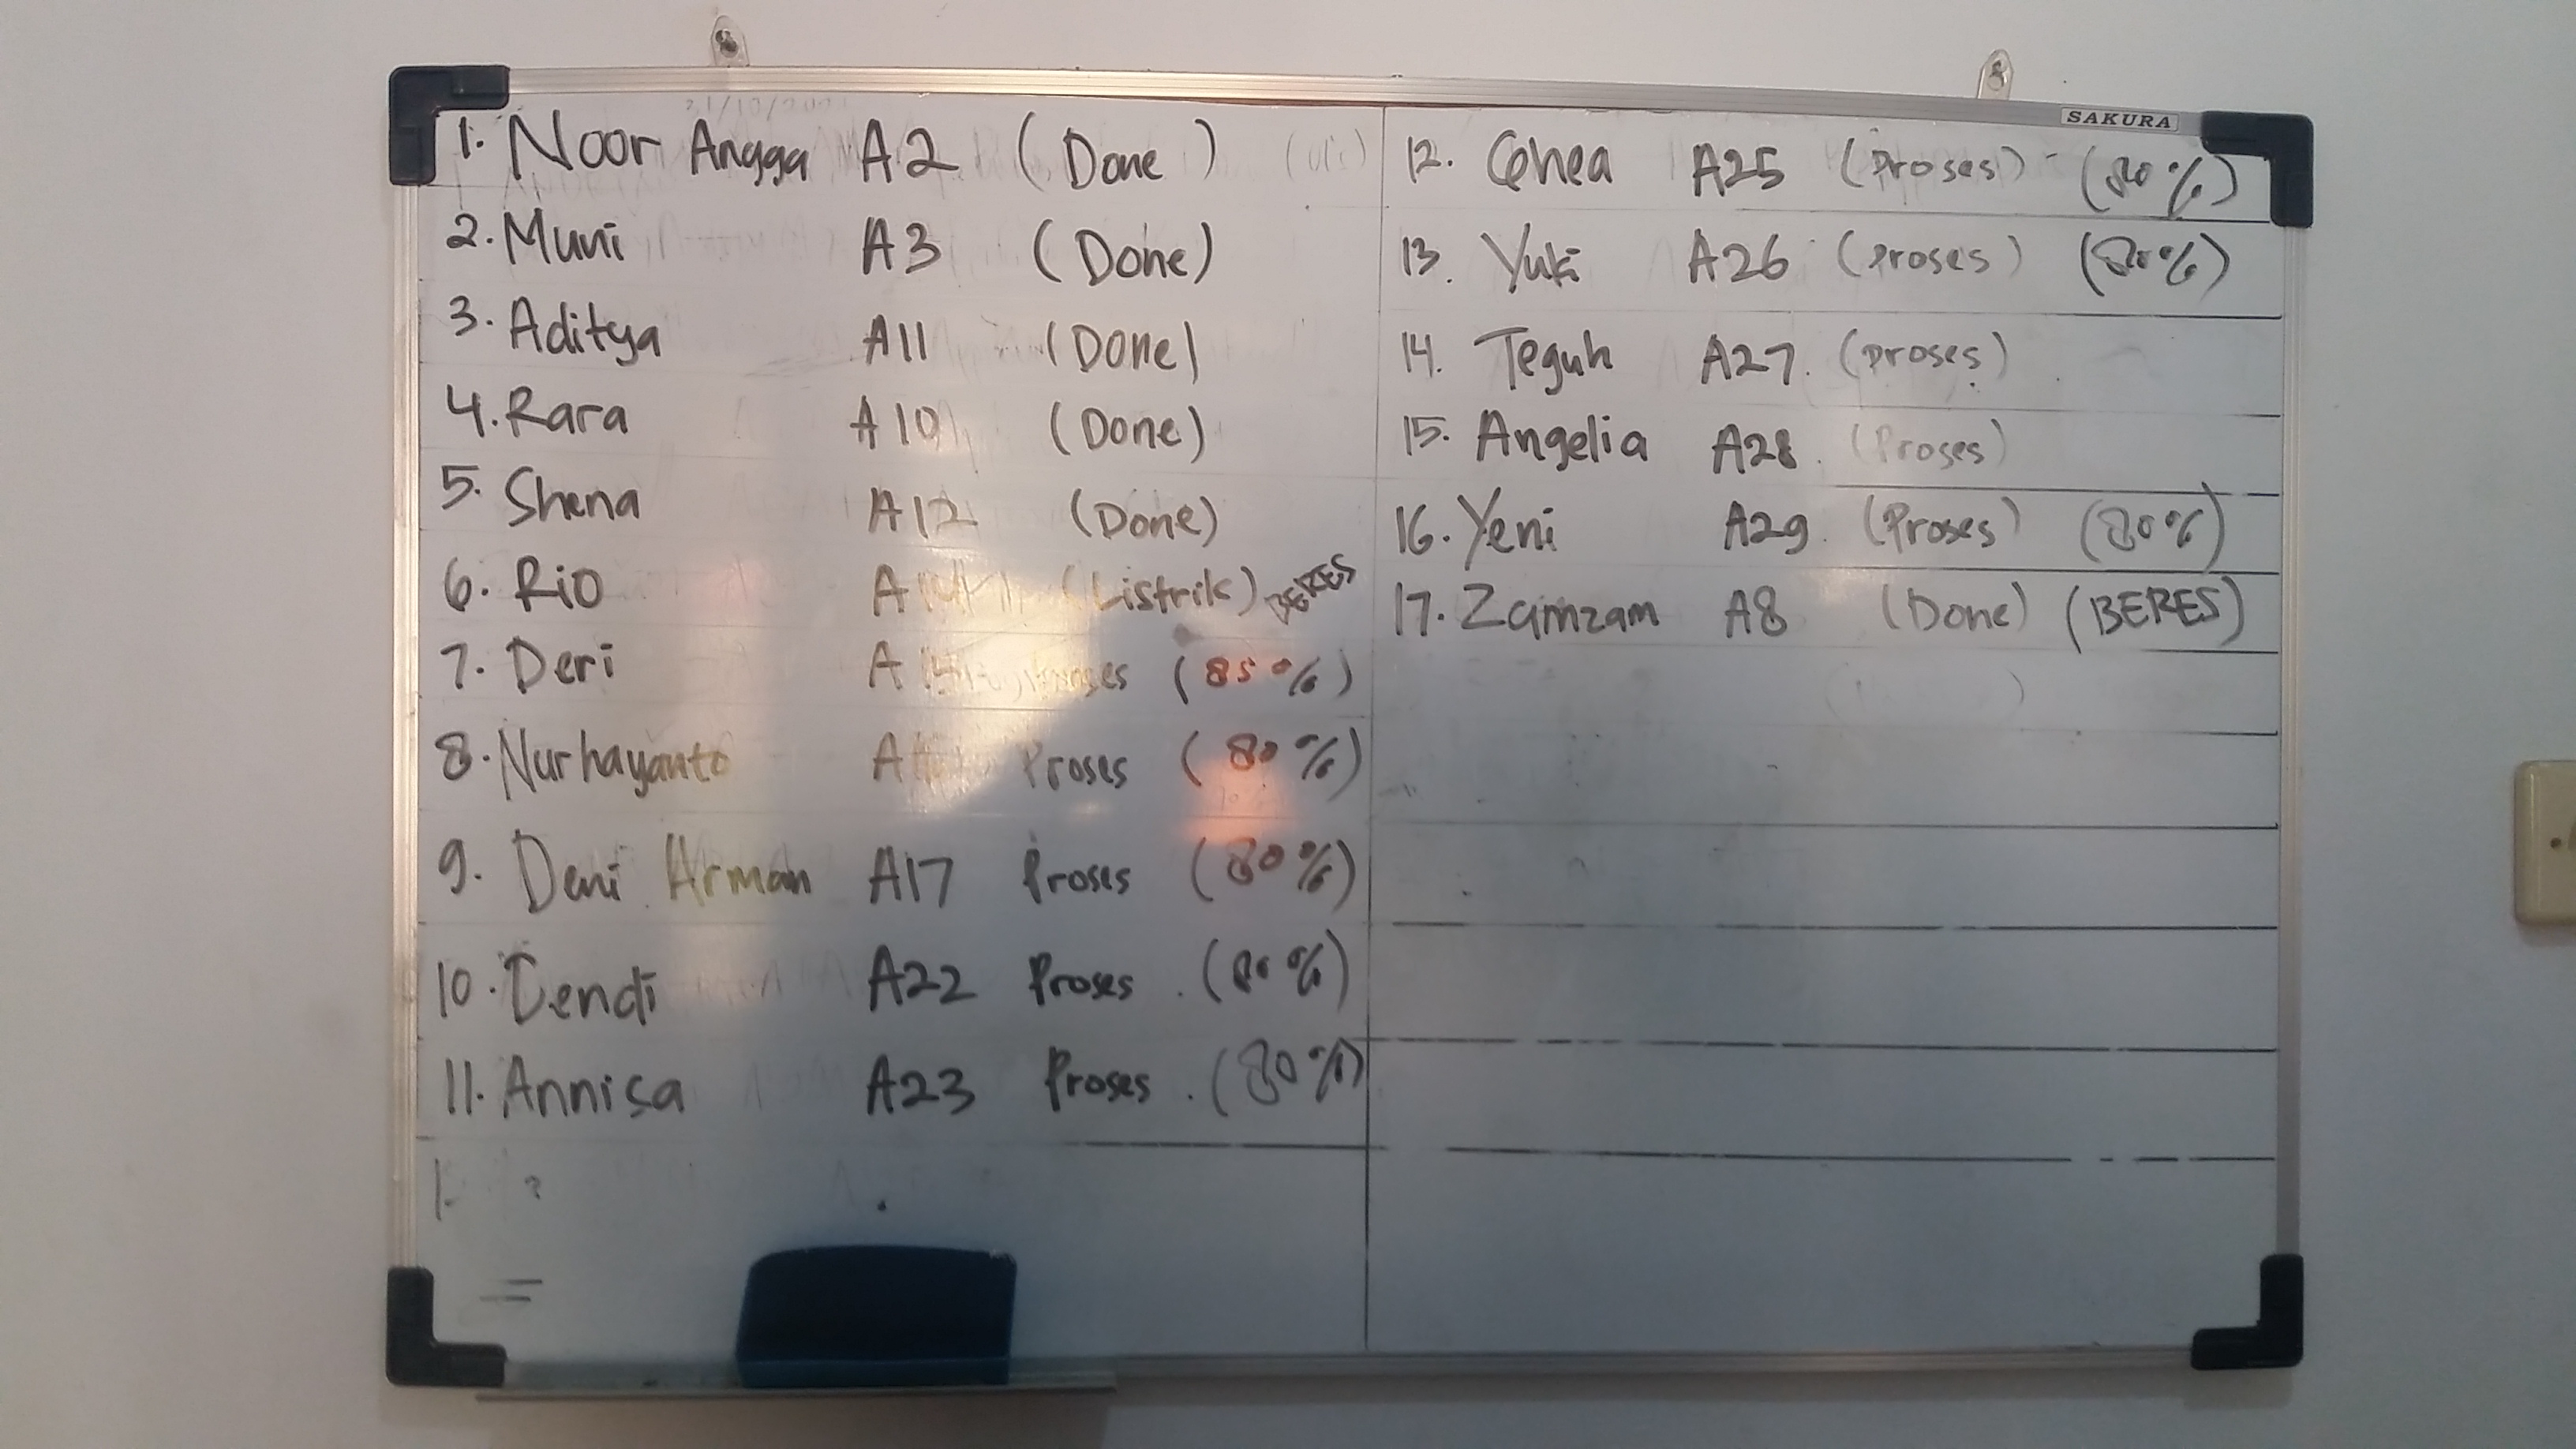 SAKURA
1. Noor Angga A2 (Done)
2. Muni A3 (Done)
3. Aditya A11 (Done)
4. Rara A10 (Done)
5. Shena A12 (Done)
6. Rio (Listrik) BERES
7. Deri Proses (85%)
8. Nurhayanto Proses (80%)
9. Deni Arman A17 Proses (80%)
10. Dendi A22 Proses (80%)
11. Annisa A23 Proses (80%)
12. A25 (Proses) (80%)
13. Yuki A26 (Proses) (80%)
14. Teguh A27 (Proses)
15. Angelia A28 (Proses)
16. Yeni A29 (Proses) (80%)
17. Zamzam A8 (Done) (BERES)